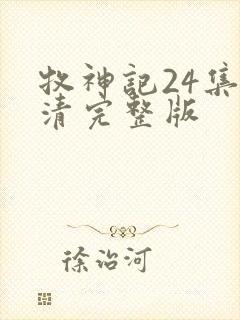 牧神记24集
清完整版
徐治河